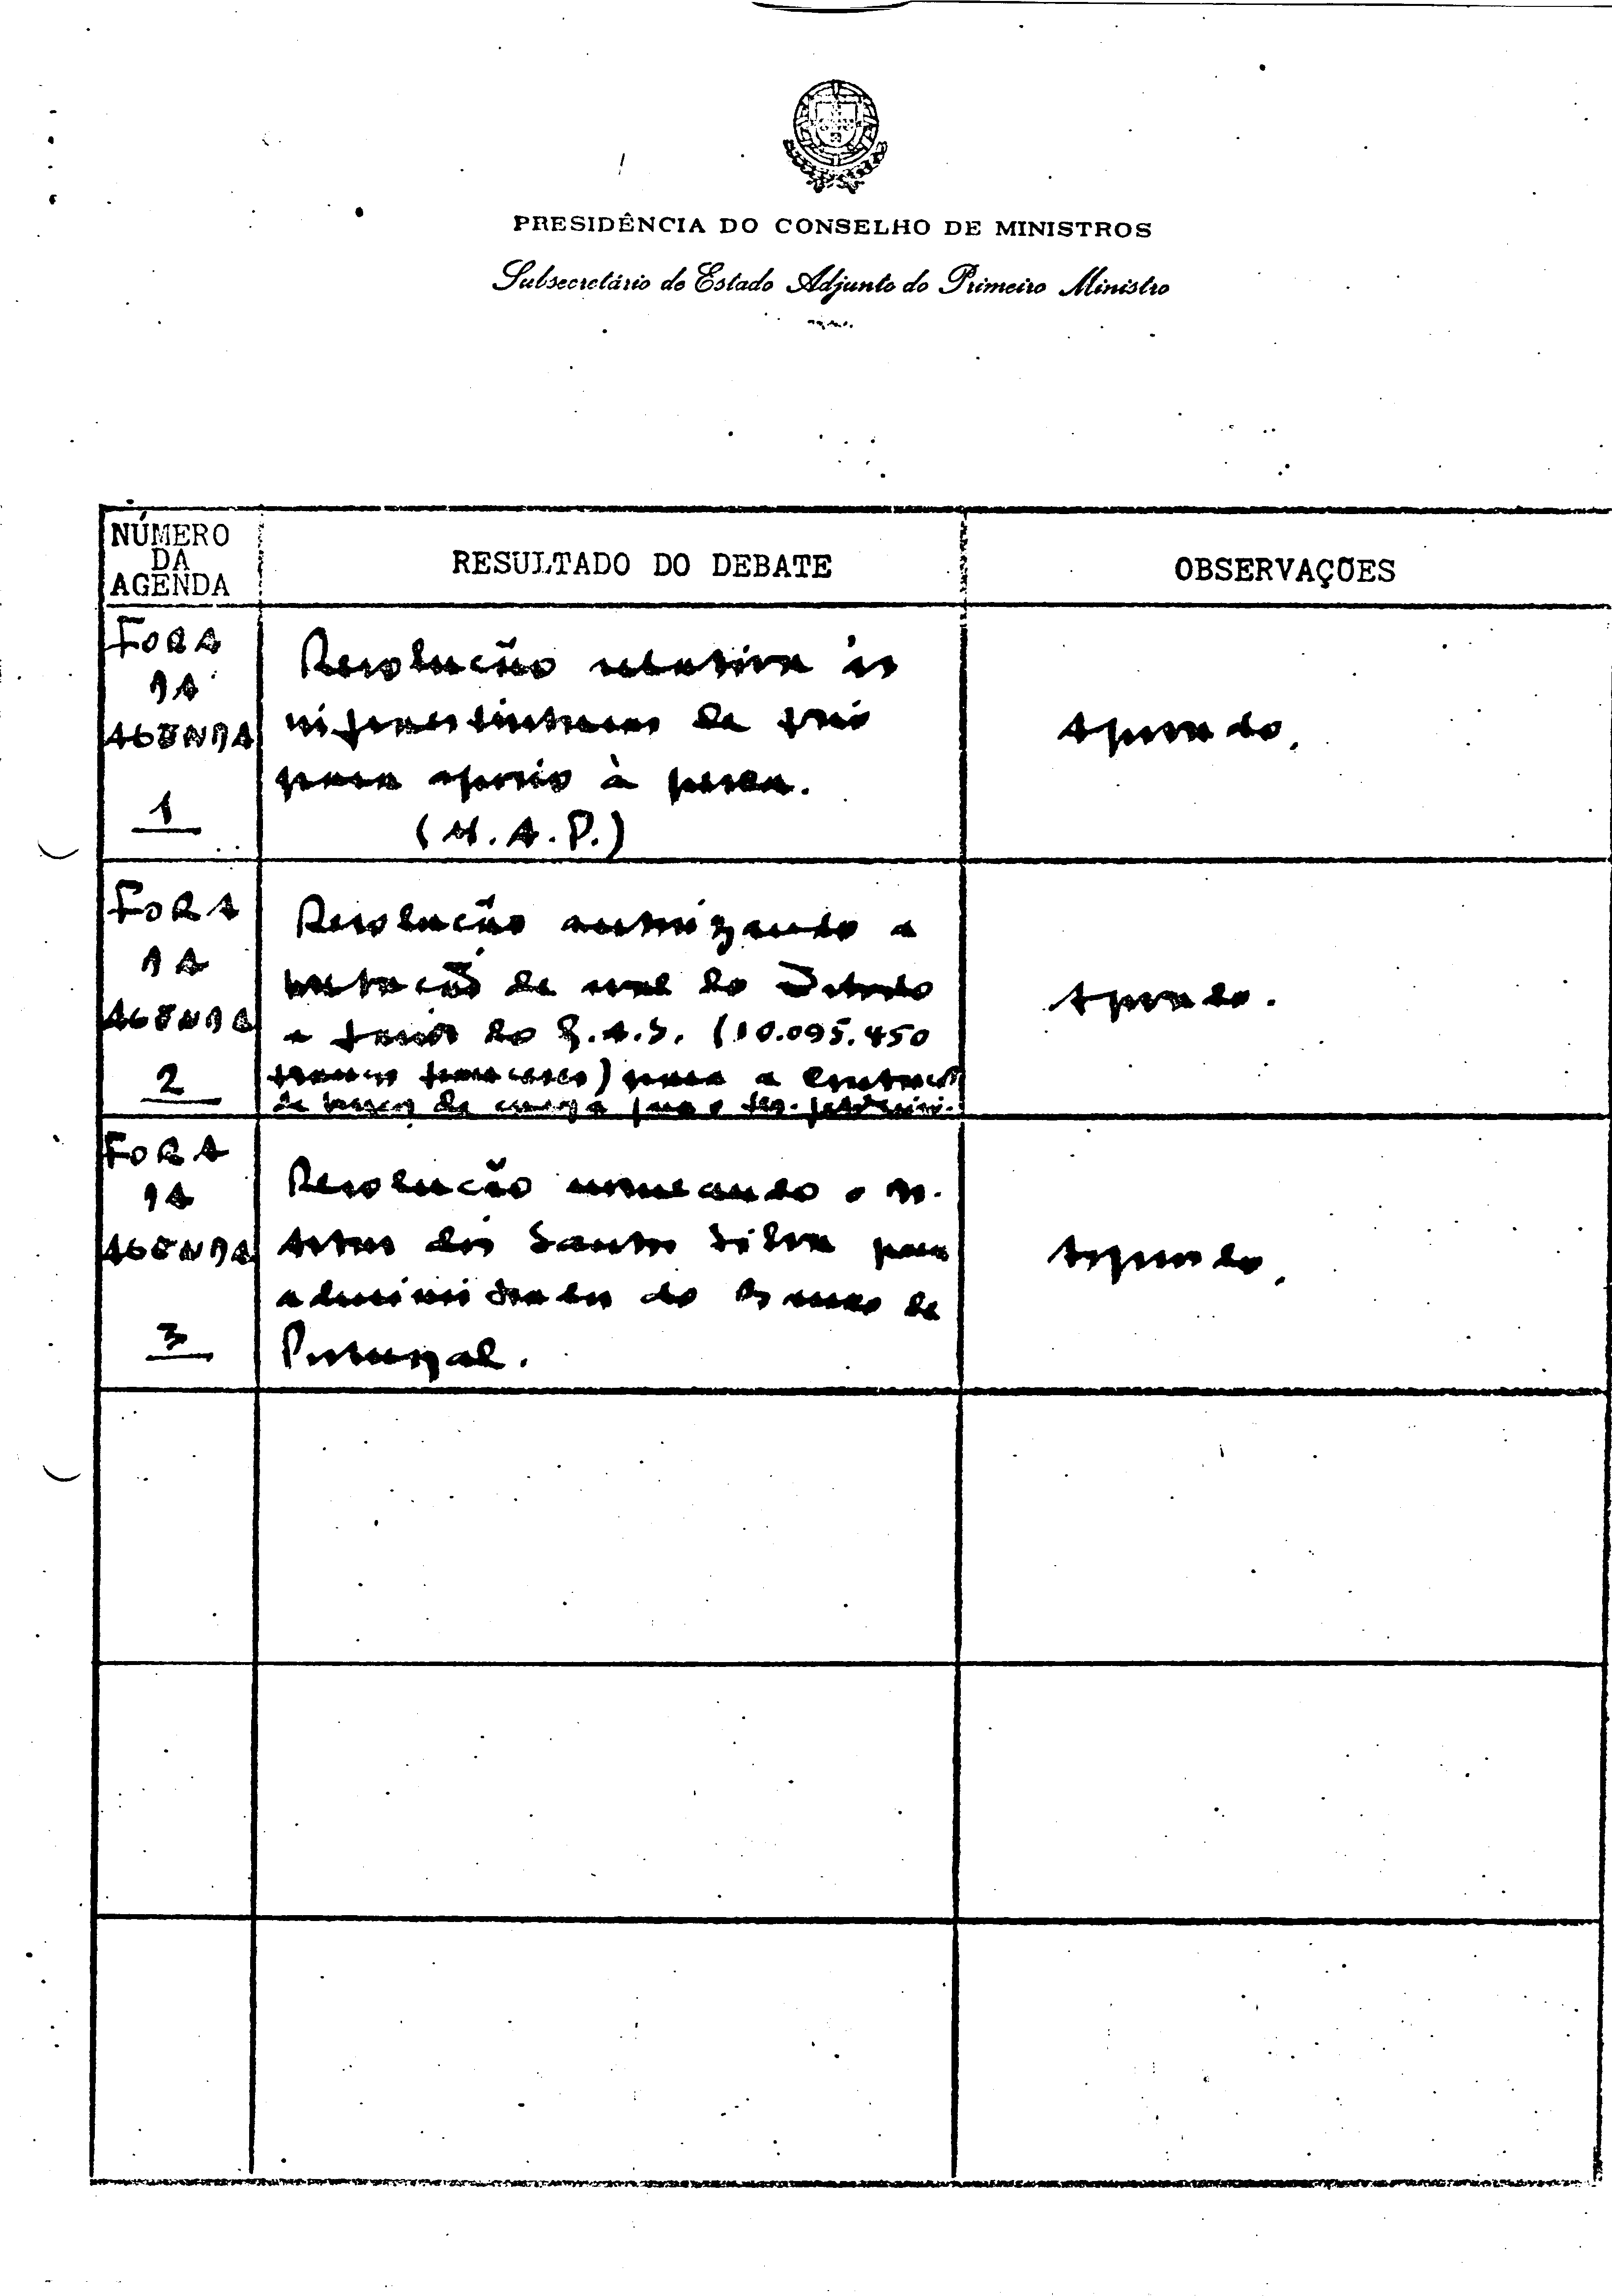 PRESIDÊNCIA DO CONSELHO DE MINISTROS
Subsecretário de Estado Adjunto do Primeiro Ministro
NÚMERO
DA
AGENDA
RESULTADO DO DEBATE
OBSERVAÇÕES
FORA
DA
AGENDA
1
Resolução relativa às
infraestruturas de frio
para apoio à pesca.
(M.A.P.)
Aprovado.
FORA
DA
AGENDA
2
Resolução autorizando a
prestação de aval do Estado
a favor do G.A.S. (10.095.450
francos franceses) para a
de para o
Aprovado.
FORA
DA
AGENDA
3
Resolução nomeando o
Artur dos Santos Silva para
administrador do Banco de
Portugal.
Aprovado.